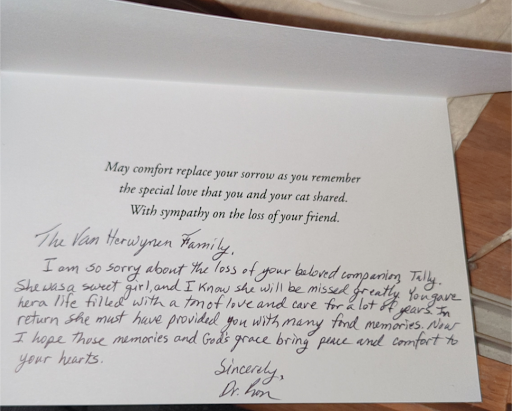 May comfort replace your sorrow as you remember
the special love that you and your cat shared.
With sympathy on the loss of your friend.
The Van Herwynen Family,
I am so sorry about the loss of your beloved companion Tally.
She was a sweet girl, and I know she will be missed greatly. You gave
her a life filled with a ton of love and care for a lot of years. In
return she must have provided you with many fond memories. Now
I hope those memories and God's grace bring peace and comfort to
your hearts.
Sincerely,
Dr.